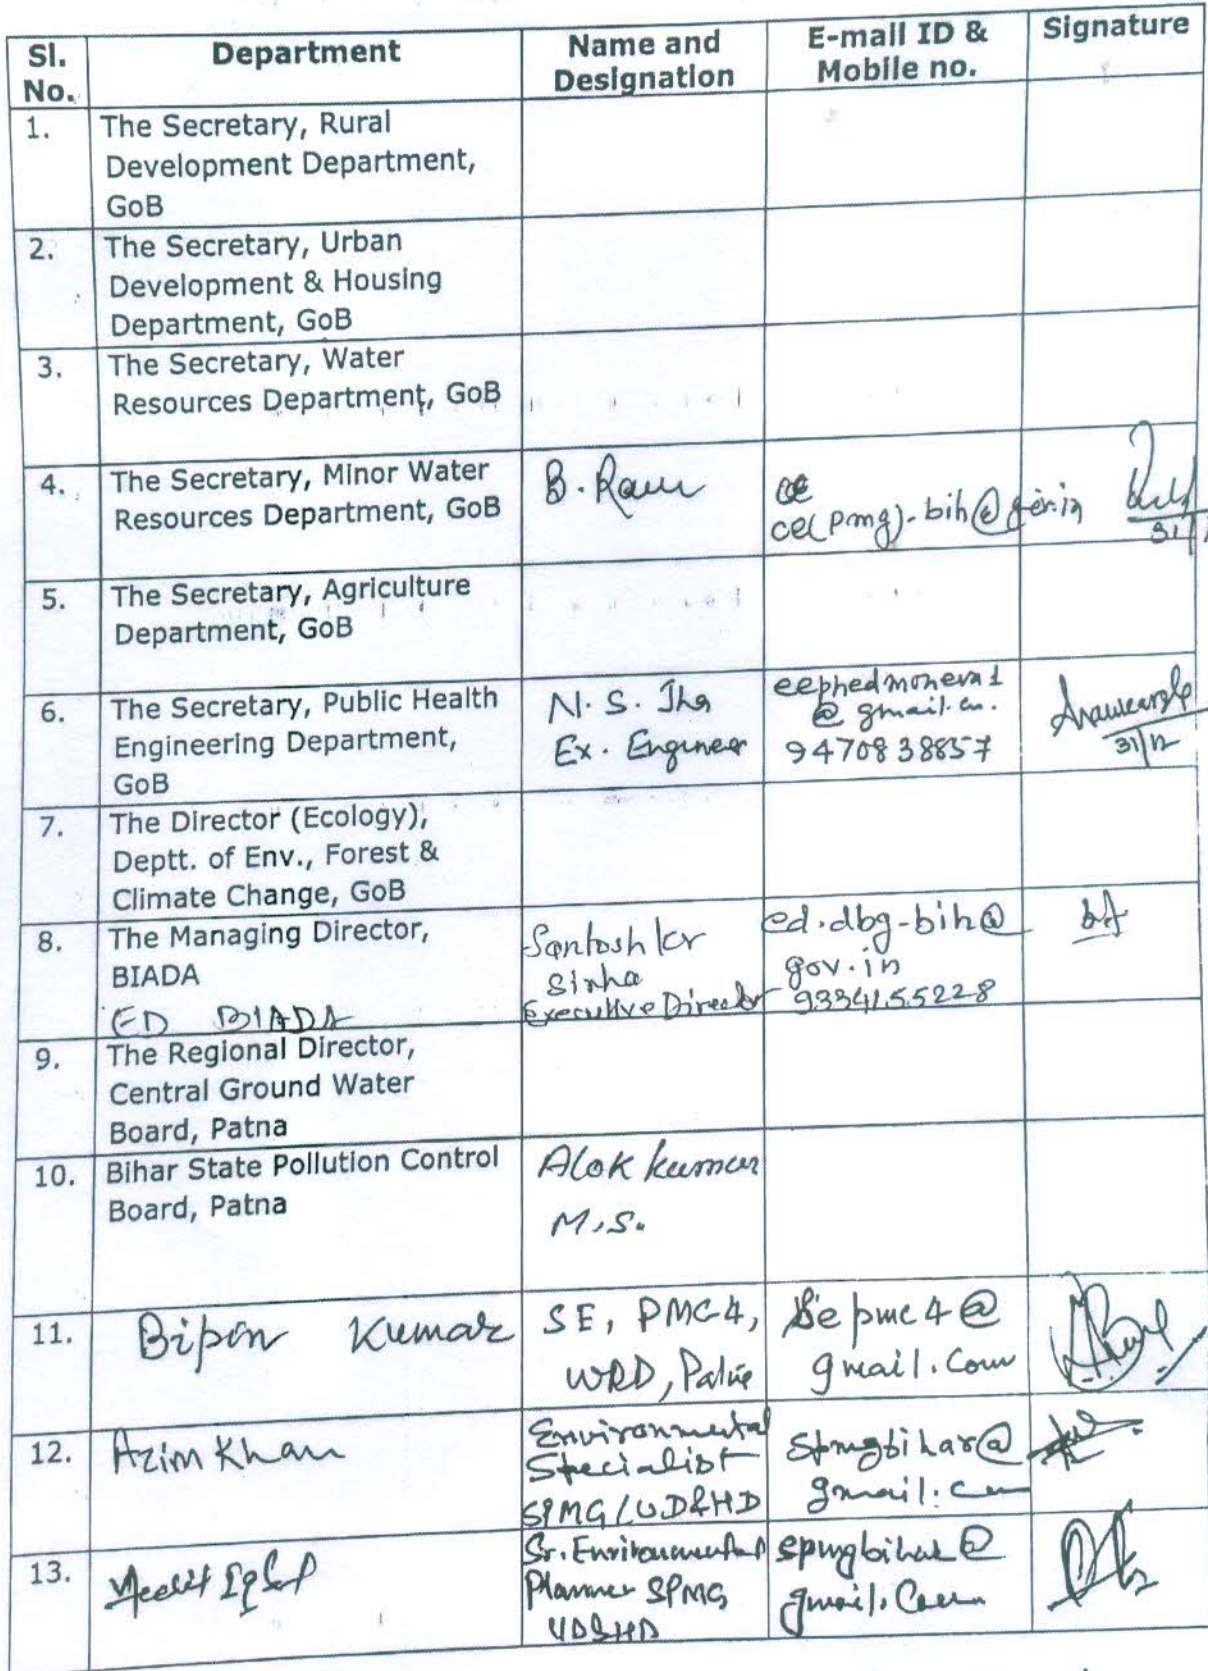 Sl. No. Department Name and Designation E-mail ID & Mobile no. Signature
1. The Secretary, Rural
Development Department,
GoB
2. The Secretary, Urban
Development & Housing
Department, GoB
3. The Secretary, Water
Resources Department, GoB
4. The Secretary, Minor Water
Resources Department, GoB
B. Ram
ce
ce(pmg)-bih@
31/
5. The Secretary, Agriculture
Department, GoB
6. The Secretary, Public Health
Engineering Department,
GoB
N. S. Jha
Ex. Engineer
eephedmoneva1
@gmail.
9470838857
31/12
7. The Director (Ecology),
Deptt. of Env., Forest &
Climate Change, GoB
8. The Managing Director,
BIADA
ED BIADA
Santosh kr
Sinha
Executive Director
ed.dbg-bih@
gov.in
9334155228
9. The Regional Director,
Central Ground Water
Board, Patna
10. Bihar State Pollution Control
Board, Patna
Alok kumar
M.S.
11. Bipin Kumar
SE, PMC-4,
WRD, Patna
Sepmc4@
gmail.com
12. Azim Khan
Environmental
Specialist
SPMG/UD&HD
spmgbihar@
gmail.com
13.
Sr. Environmental
Planner SPMG
UD&HD
spmgbihar@
gmail.com